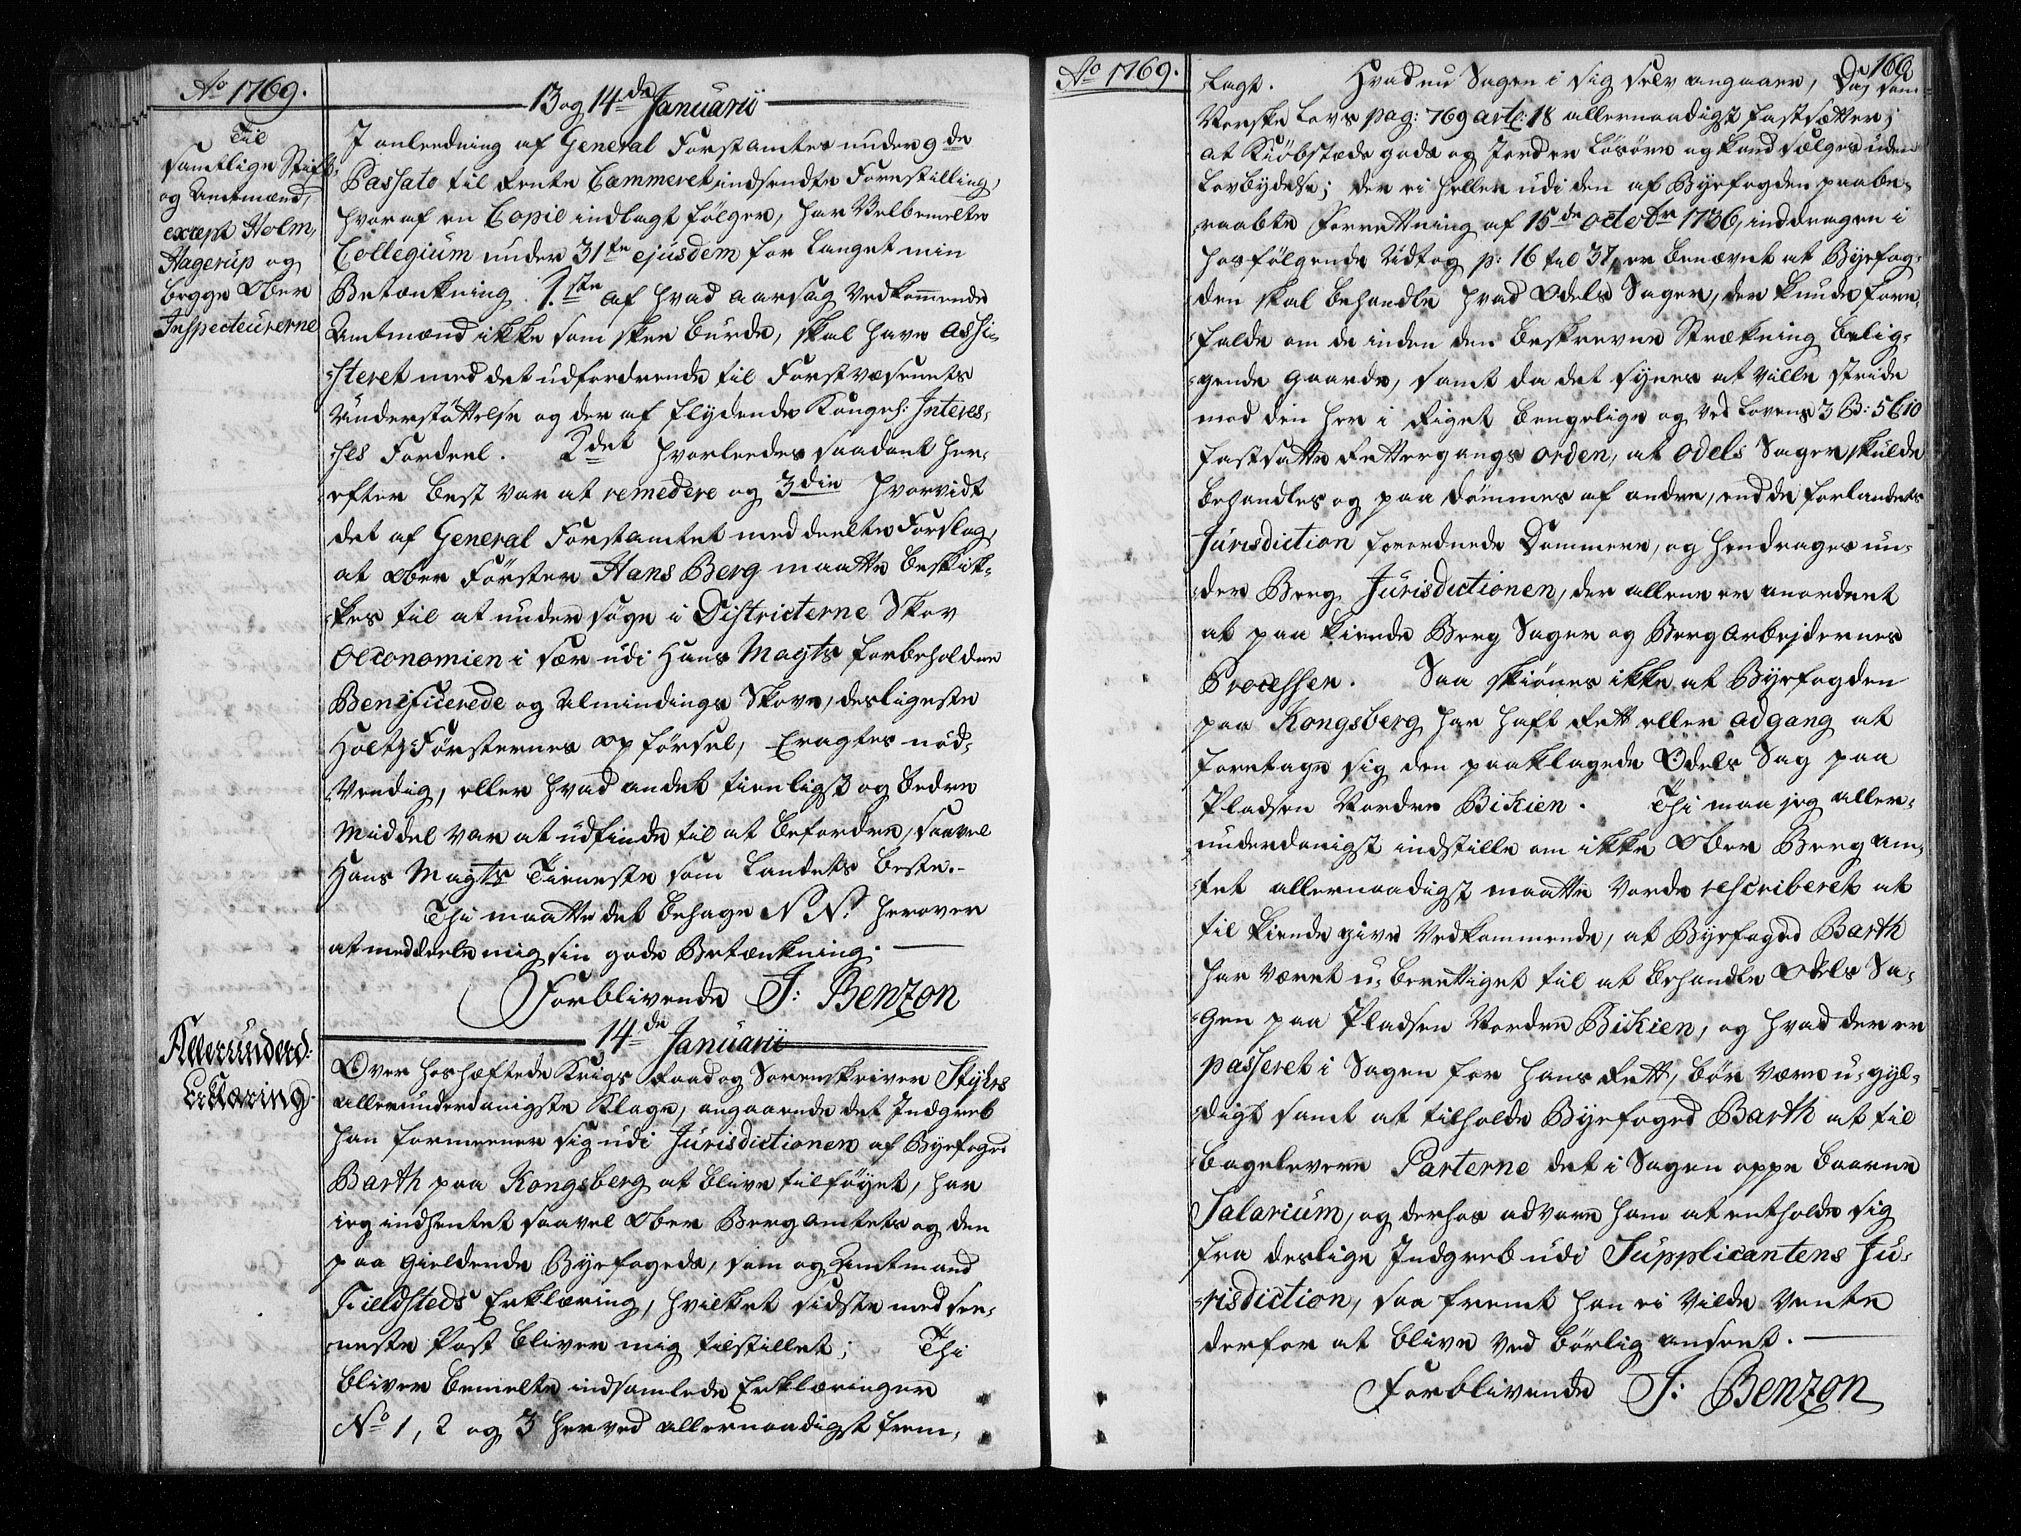 Ao 1769.
13 og 14de Januarii
Til
samtlige Stift-
og Amtmænd,
except Holm,
Hagerup og
begge Ober
Inspecteurerne
I anleedning af General Forstamtes under 9de
Passato til Rente Cammeret indsendte Forestilling,
hvoraf en Copie indlagt følger, har Velbemelte
Collegium under 31te ejusdem forlanget min
Betænkning. 1ste af hvad aarsag Vedkommende
Amtmænd ikke som skee burde, skal have assi-
steret med det udfordrende til Forstvæsenets
Understøttelse og der af flydende Kongel: Interes-
ses Fordeel. 2det hvorleedes saadant her-
efter best var at remedere og 3die hvorvidt
det af General Forstamtet meddeelte Forslag,
at Ober Förster Hans Berg maatte beskik-
kes til at undersøge i Districterne Skov
Oeconomien i sær udi Hans Mayts forbeholdne
Benificerede og Almindings Skove, desligeste
Holtz-Försternes opførsel, Eragtes nød-
vendig, eller hvad andet tienligst og bedre
Middel var at udfinde til at befordre, saavel
Hans Mayts Tieneste som Landets beste.-
Thi maatte det behage N N: herover
at meddeele mig sin gode Betænkning.
Forblivende J: Benzon
14de Januarii
Allerunderd:
Erklæring.
Over hoshæftede Krigs Raad og Sorenskriver Stykes
allerunderdanigste Klage, angaaende det Indgreb
han formeener sig udi Jurisdictionen af Byefoged
Barth paa Kongsberg at blive tilføyet, har
ieg indhentet saavel Ober Berg Amtets og den
paa Gieldende Byefogeds, som og Amtmand
Fieldsteds Erklæring, hvilket sidste med see-
neste Post bliver mig tilstillet; Thi
bliver bemelte indsamlede Erklæringer
No 1, 2 og 3 herved allernaadigst frem-
Ao 1769.
166
lagt. Hvad nu Sagen i sig selv angaaer, Da som
Norske Lovs pag: 769 artl: 18 allernaadigst fastsætter;
at Kiøbstæds gods og Jord er Løsøre og kand sælges uden
Lovbydelse; der ei heller udi den af Byefogden paabe-
raabte Forrettning af 15de Octobr 1736, inddragen i
hosfølgende Udtog p: 16 til 37, er benævnt at Byefog-
den skal behandle hvad Odels Sager, der kunde fore
falde om de inden den beskrevne Strækning belig-
gende gaarde, samt da det synes at ville stride
mod den her i Riget brugelige og ved Lovens 3 B: 5 C 10
fastsatte Rettergangs orden, at Odels Sager skulde
behandles og paa dømmes af andre, end de for Landets
Jurisdiction forordnede Dommere, og hendrages un-
der Berg Jurisdictionen, der allene er anordnet
at paa kiende Berg Sager og Berg Arbejdernes
Processen. Saa skiønes ikke at Byefogden
paa Kongsberg har haft Rett eller adgang at
foretage sig den paaklagede Odels Sag paa
Pladsen Nordre Bikien. Thi maa jeg aller-
underdanigst indstille om ikke Ober Berg Am-
tet allernaadigst maatte vorde rescriberet at
til kiende give Vedkommende, at Byefoged Barth
har været u-berettiget til at behandle Odels Sa-
gen paa Pladsen Nordre Bikien, og hvad der er
passeret i Sagen for hans Rett, bør være u-gyl-
digt samt at tilholde Byefoged Barth at til
bagelevere Parterne det i Sagen oppebaarne
Salarium, og derhos advare ham at entholde sig
fra deslige Indgreb udi Supplicantens Ju-
risdiction, saa fremt han ei vilde vente
derfor at blive ved børlig anseet.
Forblivende J: Benzon